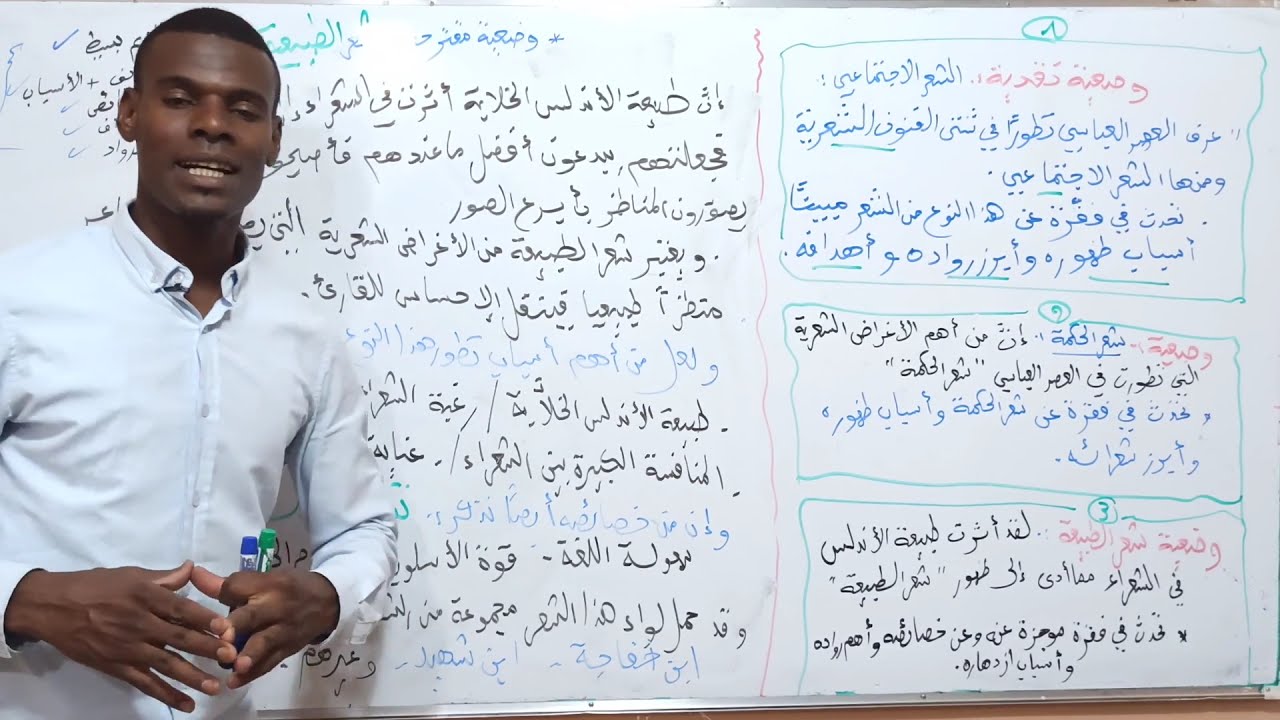 ١
وضعية نقدية: الشعر الاجتماعي:
" عرف العصر العباسي تطورًا في شتى الفنون الشعرية
ومنها الشعر الاجتماعي.
. تحدث في فقرة عن هذا النوع من الشعر مبينًا
أسباب ظهوره وأبرز رواده وأهدافه.
٢
وضعية: شعر الحكمة: إنّ من أهم الأغراض الشعرية
التي تطورت في العصر العباسي "شعر الحكمة"
* تحدث في فقرة عن شعر الحكمة وأسباب ظهوره
وأبرز شعرائه.
3
وضعية شعر الطبيعة: لقد أثرت طبيعة الأندلس
في الشعراء مما أدى إلى ظهور "شعر الطبيعة"
* تحدث في فقرة موجزة عنه وعن خصائصه وأهم رواده
وأسباب ازدهاره.
* وضعية مقترحة شعر الطبيعة
إنّ طبيعة الأندلس الخلابة أثرت في الشعراء
فجعلتهم يبدعون أفضل ما عندهم فأصبحوا
يصوّرون المناظر بأبدع الصور
. ويعتبر شعر الطبيعة من الأغراض الشعرية التي
منظرًا طبيعيا فينتقل الإحساس للقارئ.
ولعل من أهم أسباب تطور هذا النوع
- طبيعة الأندلس الخلابة / رغبة
- المنافسة الكبيرة بين الشعراء /. عناية
وإن من خصائصه أيضًا نذكر:
سهولة اللغة - قوة الأسلوب
وقد حمل لواء هذا الشعر مجموعة من
ابن خفاجة - ابن شهيد - وغيرهم
بسيط ✓
+ الأسباب ✓
✓
✓
✓